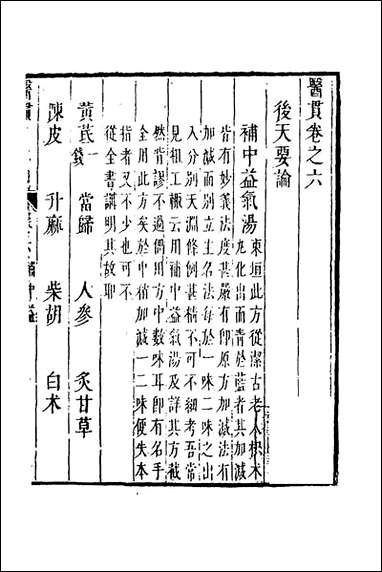 醫貫卷之六
後天要論
補中益氣湯
東垣此方從潔古老人枳朮
丸化出而青於藍者其加減
皆有妙義法度甚嚴有即原方加減法有
加減而別立主名法每於一味二味之出
入分別天淵條例甚精不可不細考吾常
見粗工輒云用補中益氣湯及詳其方截
然背謬不過偶用方中數味耳即有名手
全用此方矣於中稍加減一二味便失本
指者又不少也可不
從全書講明其故耶
黃芪一錢 當歸 人參 炙甘草
陳皮 升麻 柴胡 白朮